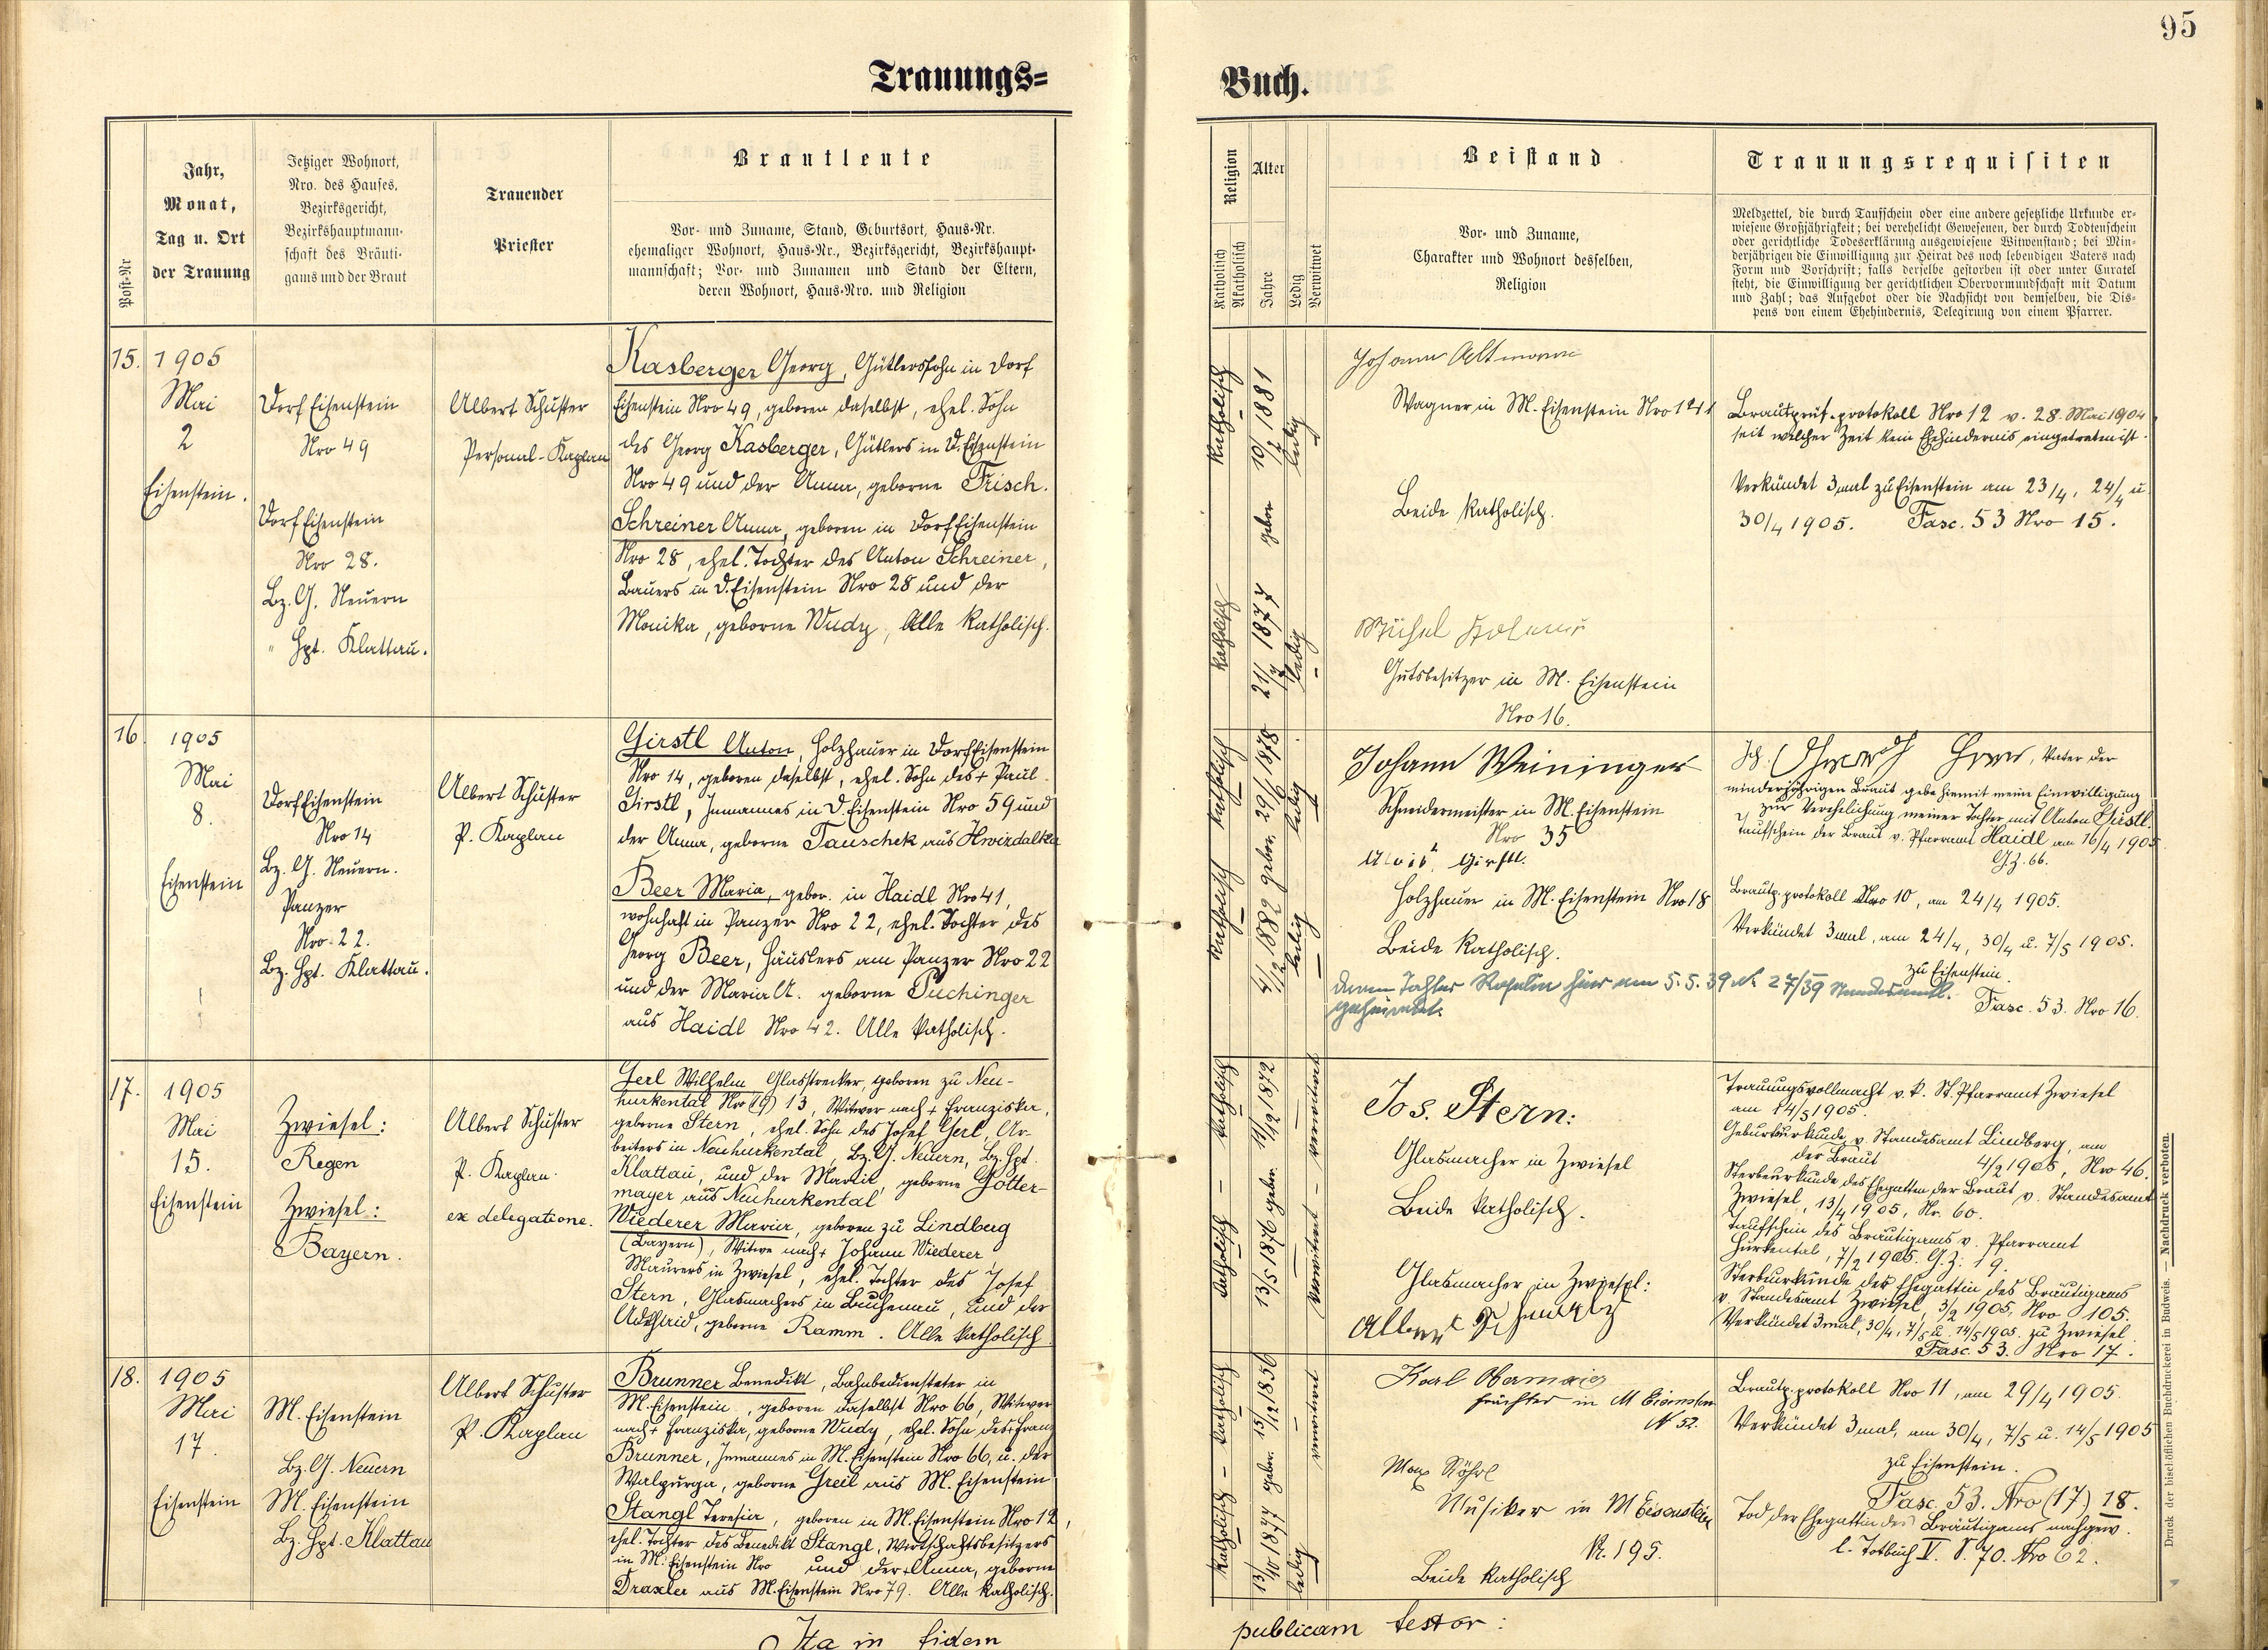 95
Trauungs=
Buch.
Post-Nr
Jahr,
Monat,
Tag u. Ort
der Trauung
Jetziger Wohnort,
Nro. des Hauses,
Bezirksgericht,
Bezirkshauptmann-
schaft des Bräuti-
gams und der Braut
Trauender
Priester
Brautleute
Vor- und Zuname, Stand, Geburtsort, Haus-Nr.
ehemaliger Wohnort, Haus-Nr., Bezirksgericht, Bezirkshaupt-
mannschaft; Vor- und Zunamen und Stand der Eltern,
deren Wohnort, Haus-Nro. und Religion
Religion
Katholisch
Akatholisch
Alter
Jahre
Ledig
Verwitwet
Beistand
Vor- und Zuname,
Charakter und Wohnort desselben,
Religion
Trauungsrequisiten
Meldzettel, die durch Taufschein oder eine andere gesetzliche Urkunde er-
wiesene Großjährigkeit; bei verehelicht Gewesenen, der durch Todtenschein
oder gerichtliche Todeserklärung ausgewiesene Witwenstand; bei Min-
derjährigen die Einwilligung zur Heirat des noch lebendigen Vaters nach
Form und Vorschrift; falls derselbe gestorben ist oder unter Curatel
steht, die Einwilligung der gerichtlichen Obervormundschaft mit Datum
und Zahl; das Aufgebot oder die Nachsicht von demselben, die Dis-
pens von einem Ehehindernis, Delegirung von einem Pfarrer.
15.
1905
Mai
2
Eisenstein.
Dorf Eisenstein
Nro 49
Dorf Eisenstein
Nro 28.
Bz. G. Neuern
" Hpt. Klattau.
Albert Schuster
Personal-Kaplan
Kasberger Georg, Gütlerssohn in Dorf
Eisenstein Nro 49, geboren daselbst, ehel. Sohn
des Georg Kasberger, Gütlers in D. Eisenstein
Nro 49 und der Anna, geborne Frisch.
Schreiner Anna, geboren in Dorf Eisenstein
Nro 28, ehel. Tochter des Anton Schreiner,
Bauers in D. Eisenstein Nro 28 und der
Monika, geborne Wudy, Alle katholisch.
katholisch
10/7 1881
ledig
geboren
katholisch
21/7 1877
ledig
Johann Altmann
Wagner in M. Eisenstein Nro 121
Beide katholisch.
Gutsbesitzer in M. Eisenstein
Nro 16.
Brautprüf. protokoll Nro 12 v. 28. Mai 1904,
seit welcher Zeit kein Ehehindernis eingetreten ist.
Verkündet 3mal zu Eisenstein am 23/4, 24/4 u.
30/4 1905. Fasc. 53 Nro 15.
16.
1905
Mai
8.
Eisenstein
Dorf Eisenstein
Nro 14
Bz. G. Neuern.
Panzer
Nro. 22.
Bz. Hpt. Klattau.
Albert Schuster
P. Kaplan
Girstl Anton, Holzhauer in Dorf Eisenstein
Nro 14, geboren daselbst, ehel. Sohn des + Paul
Girstl, Inmannes in D. Eisenstein Nro 59 und
der Anna, geborne Tauschek aus Hwizdalka
Beer Maria, gebor. in Haidl Nro 41,
wohnhaft in Panzer Nro 22, ehel. Tochter des
Georg Beer, Häuslers am Panzer Nro 22
und der Maria A. geborne Puchinger
aus Haidl Nro 42. Alle katholisch.
katholisch
29/6 1878
ledig
gebor.
katholisch
4/12 1882
ledig
Johann Weininger
Schneidermeister in M. Eisenstein
Nro 35
Alois Girstl.
Holzhauer in M. Eisenstein Nro 18
Beide katholisch.
deren Tochter Rosalia hier am 5.5.39 N. 27/39 standesamtl.
geheiratet.
Ich, Beer, Vater der
minderjährigen Braut gebe hiemit meine Einwilligung
zur Verehelichung meiner Tochter mit Anton Girstl.
Taufschein der Braut v. Pfarramt Haidl am 16/4 1905
GZ. 66.
Brautp. protokoll Nro 10, am 24/4 1905.
Verkündet 3mal, am 24/4, 30/4 u. 7/5 1905.
zu Eisenstein.
Fasc. 53. Nro 16.
17.
1905
Mai
15.
Eisenstein
Zwiesel:
Regen
Zwiesel:
Bayern.
Albert Schuster
P. Kaplan.
ex delegatione.
Gerl Wilhelm, Glasstrecker, geboren zu Neu-
hurkental Nro (19) 13, Witwer nach + Franziska,
geborne Stern, ehel. Sohn des Josef Gerl, Ar-
beiters in Neuhurkental, Bz. G. Neuern, Bz. Hpt.
Klattau, und der Maria, geborne Götter-
mayer aus Neuhurkental
Wiederer Maria, geboren zu Lindberg
(Bayern), Witwe nach + Johann Wiederer
Maurers in Zwiesel, ehel. Tochter des Josef
Stern, Glasmachers in Buchenau, und der
geborne Ramm. Alle katholisch.
katholisch
11/12 1872
verwitwet
gebor.
katholisch
13/5 1876
verwitwet
Jos. Stern:
Glasmacher in Zwiesel
Beide katholisch.
Glasmacher in Zwiesel:
Trauungsvollmacht v. k. St. Pfarramt Zwiesel
am 14/5 1905.
Geburtsurkunde v. Standesamt Lindberg, am
der Braut 4/2 1905, Nro 46.
Sterbeurkunde des Ehegatten der Braut v. Standesamt
Zwiesel, 13/4 1905, Nr. 60.
Taufschein des Bräutigams v. Pfarramt
Hurkental, 7/2 1905. G.Z: 19.
Sterbeurkunde der Ehegattin des Bräutigams
v. Standesamt Zwiesel, 3/2 1905. Nro 105.
Verkündet 3mal, 30/4, 7/5 u. 14/5 1905. zu Zwiesel.
Fasc. 53. Nro 17.
18.
1905
Mai
17.
Eisenstein
M. Eisenstein
Bz. G. Neuern
M. Eisenstein
Bz. Hpt. Klattau
Albert Schuster
P. Kaplan
Brunner Benedikt, Bahnbediensteter in
M. Eisenstein, geboren daselbst Nro 66, Witwer
nach + Franziska, geborne Wudy, ehel. Sohn des + Franz
Brunner, Inmannes in M. Eisenstein Nro 66, u. der
Walpurga, geborne Greil aus M. Eisenstein
Stangl Teresia, geboren in M. Eisenstein Nro 12,
ehel. Tochter des Benedikt Stangl, Wirtschaftsbesitzers
in M. Eisenstein Nro und der + Anna, geborne
Draxler aus M. Eisenstein Nro 79. Alle katholisch.
katholisch
15/12 1856
verwitwet
gebor.
katholisch
13/10 1877
ledig
Karl Obermaier
in M Eisenstein
N 52.
Max Röhrl
Musiker in M Eisenstein
N. 195.
Beide katholisch
Brautp. protokoll Nro 11, am 29/4 1905.
Verkündet 3mal, am 30/4, 7/5 u. 14/5 1905
zu Eisenstein.
Fasc. 53. Nro (17) 18.
Tod der Ehegattin des Bräutigams nachgew.
l. Totbuch V. S. 70. Nro 62.
Ita in fidem
publicam testor:
Druck der bischöflichen Buchdruckerei in Budweis. — Nachdruck verboten.